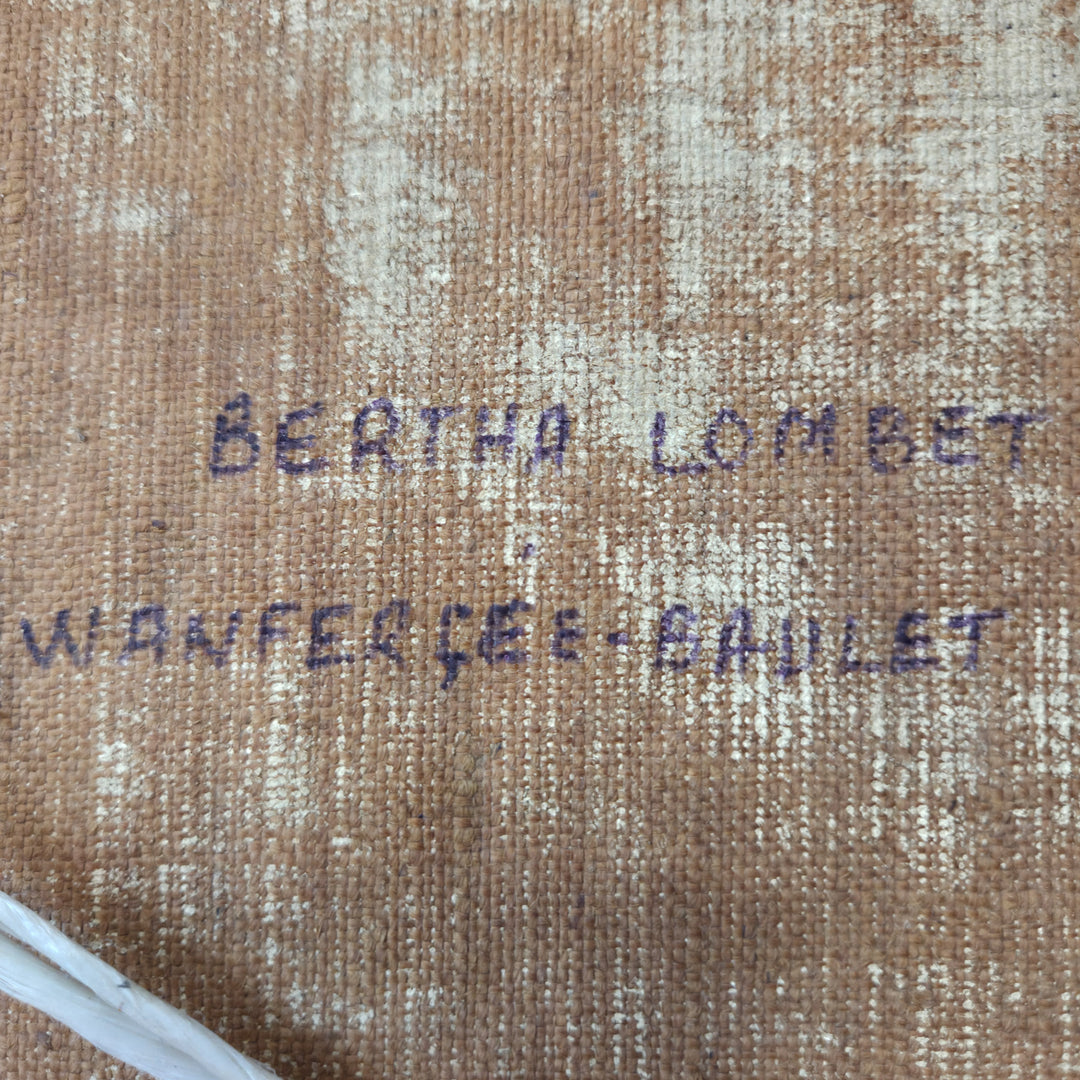 BERTHA LOMBET
WANFERÇÉE-BAULET